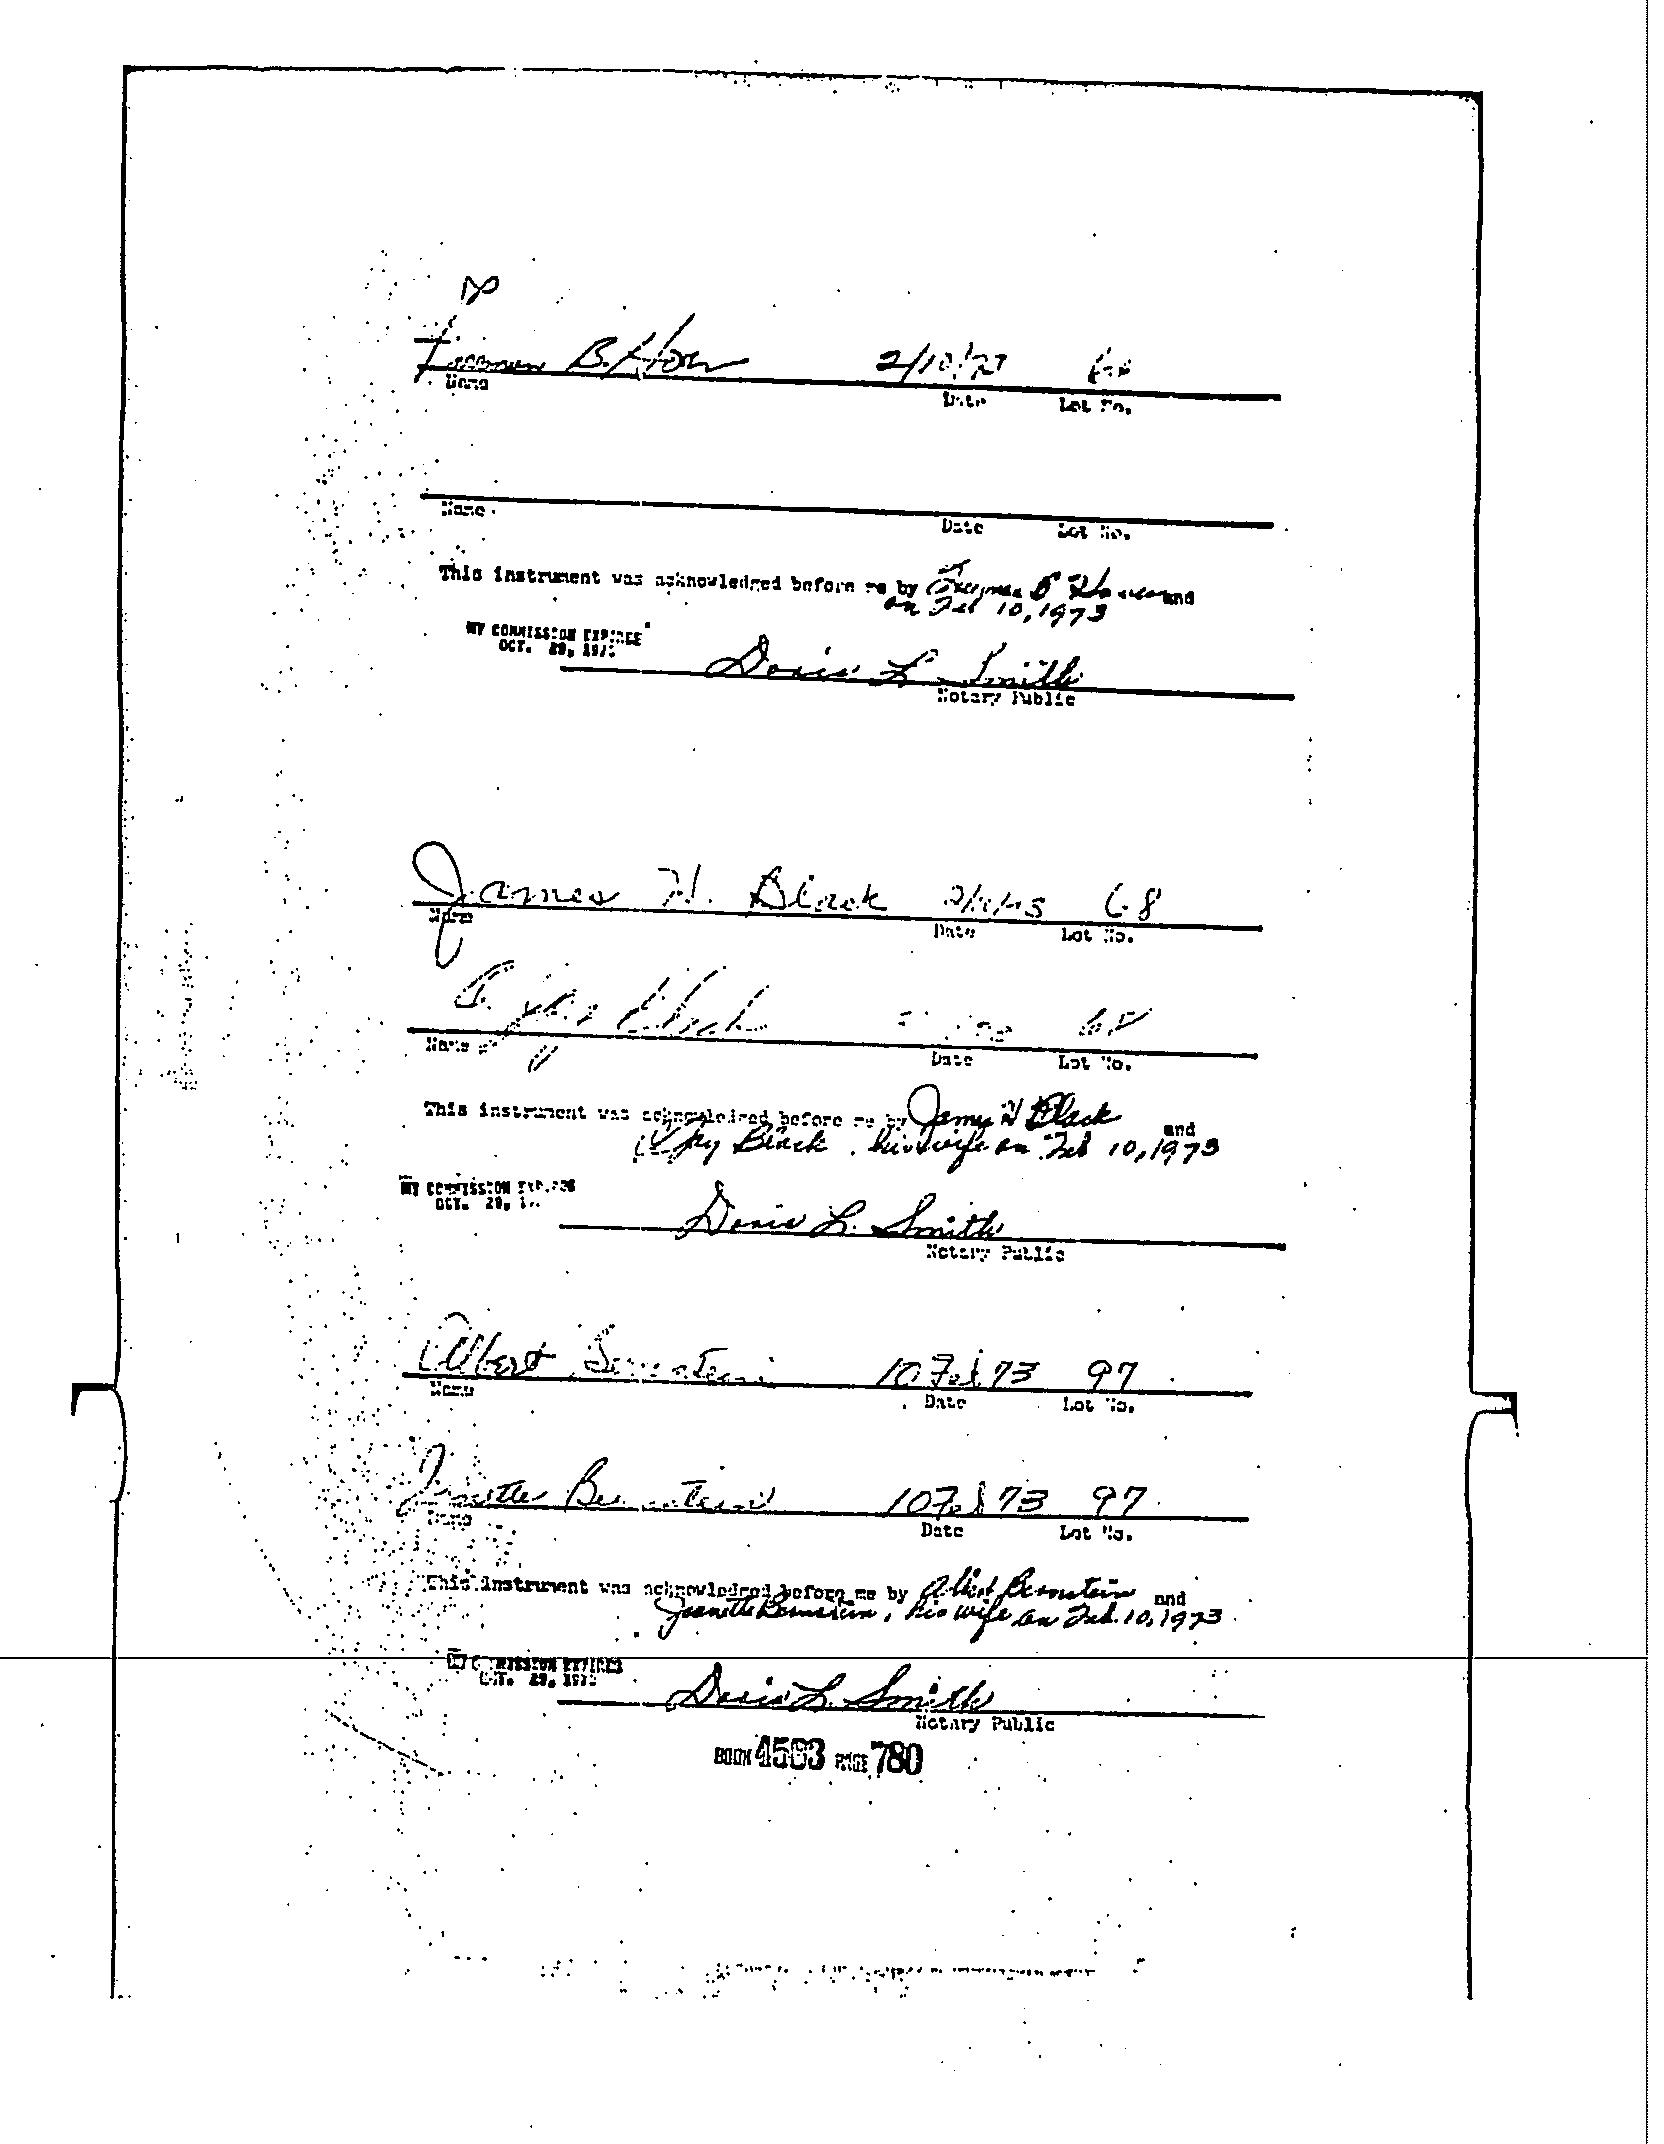 B.
Name
Date Lot No.
Name
Date Lot No.
This instrument was acknowledged before me by and
on Feb 10, 1973
MY COMMISSION EXPIRES
OCT. 29,
Doris L. Smith
Notary Public
James H. Black 68
Name
Date Lot No.
Black 68
Name
Date Lot No.
This instrument was acknowledged before me by James H Black and
Black, his wife on Feb 10, 1973
MY COMMISSION EXPIRES
OCT. 29,
Doris L. Smith
Notary Public
Albert Bernstein 10 Feb 73 97
Name
Date Lot No.
Jeanette Bernstein 10 Feb 73 97
Name
Date Lot No.
This instrument was acknowledged before me by Albert Bernstein and
Jeanette Bernstein, his wife on Feb. 10, 1973
MY COMMISSION EXPIRES
OCT. 29,
Doris L. Smith
Notary Public
BOOK PAGE 780